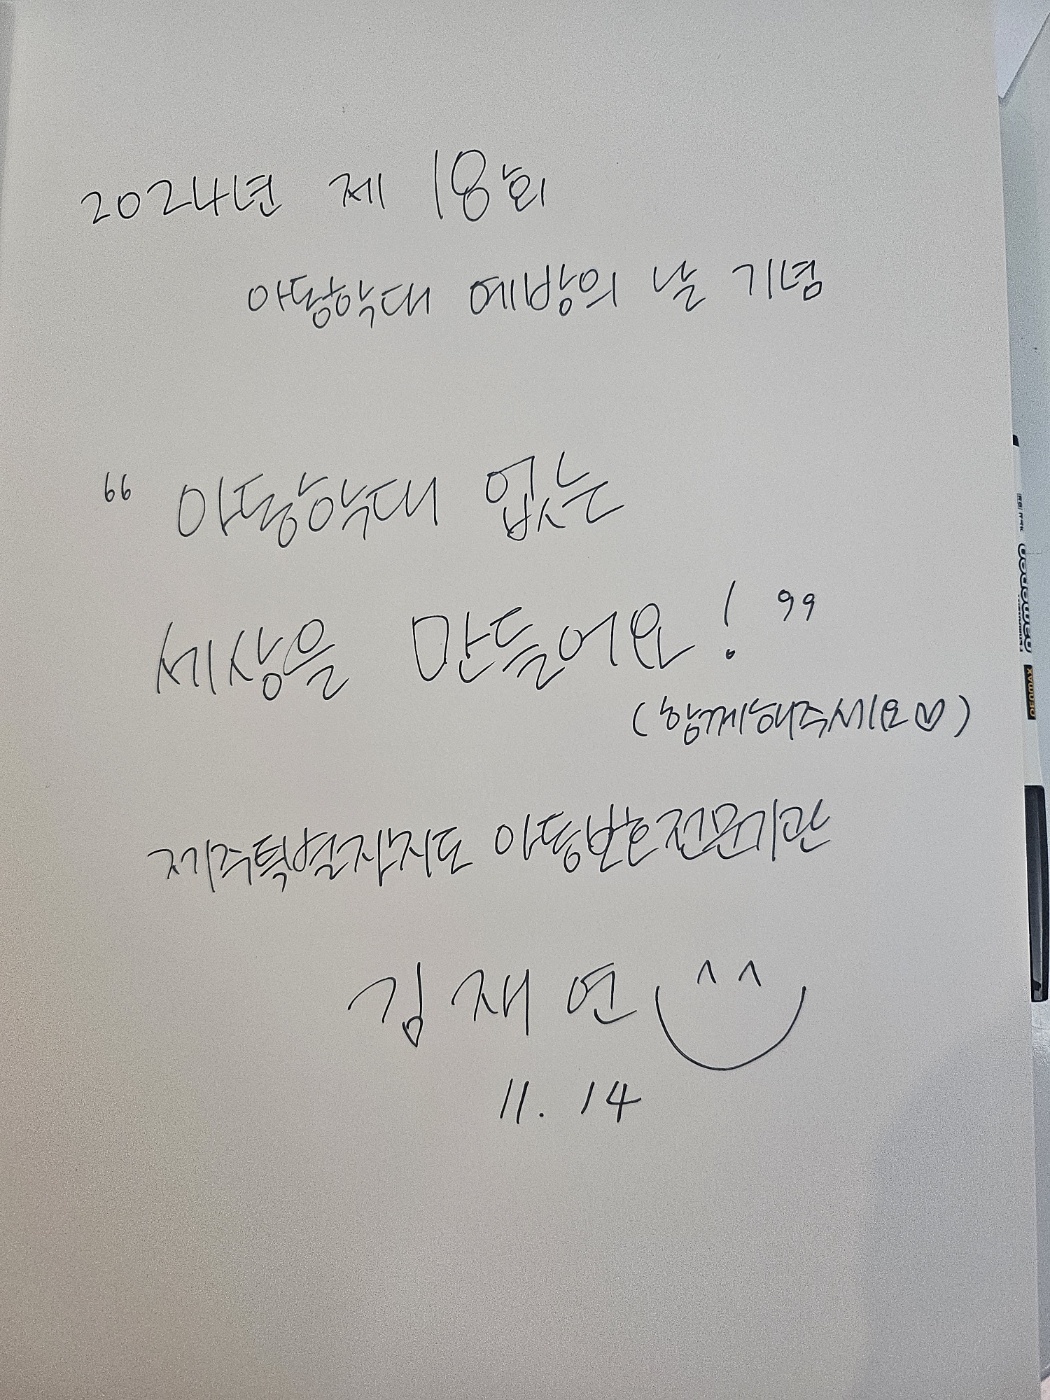 2024년 제 18회
아동학대 예방의 날 기념
“ 아동학대 없는
세상을 만들어요! ”
(함께해주세요♡)
제주특별자치도 아동보호전문기관
김재연 ^^
11. 14